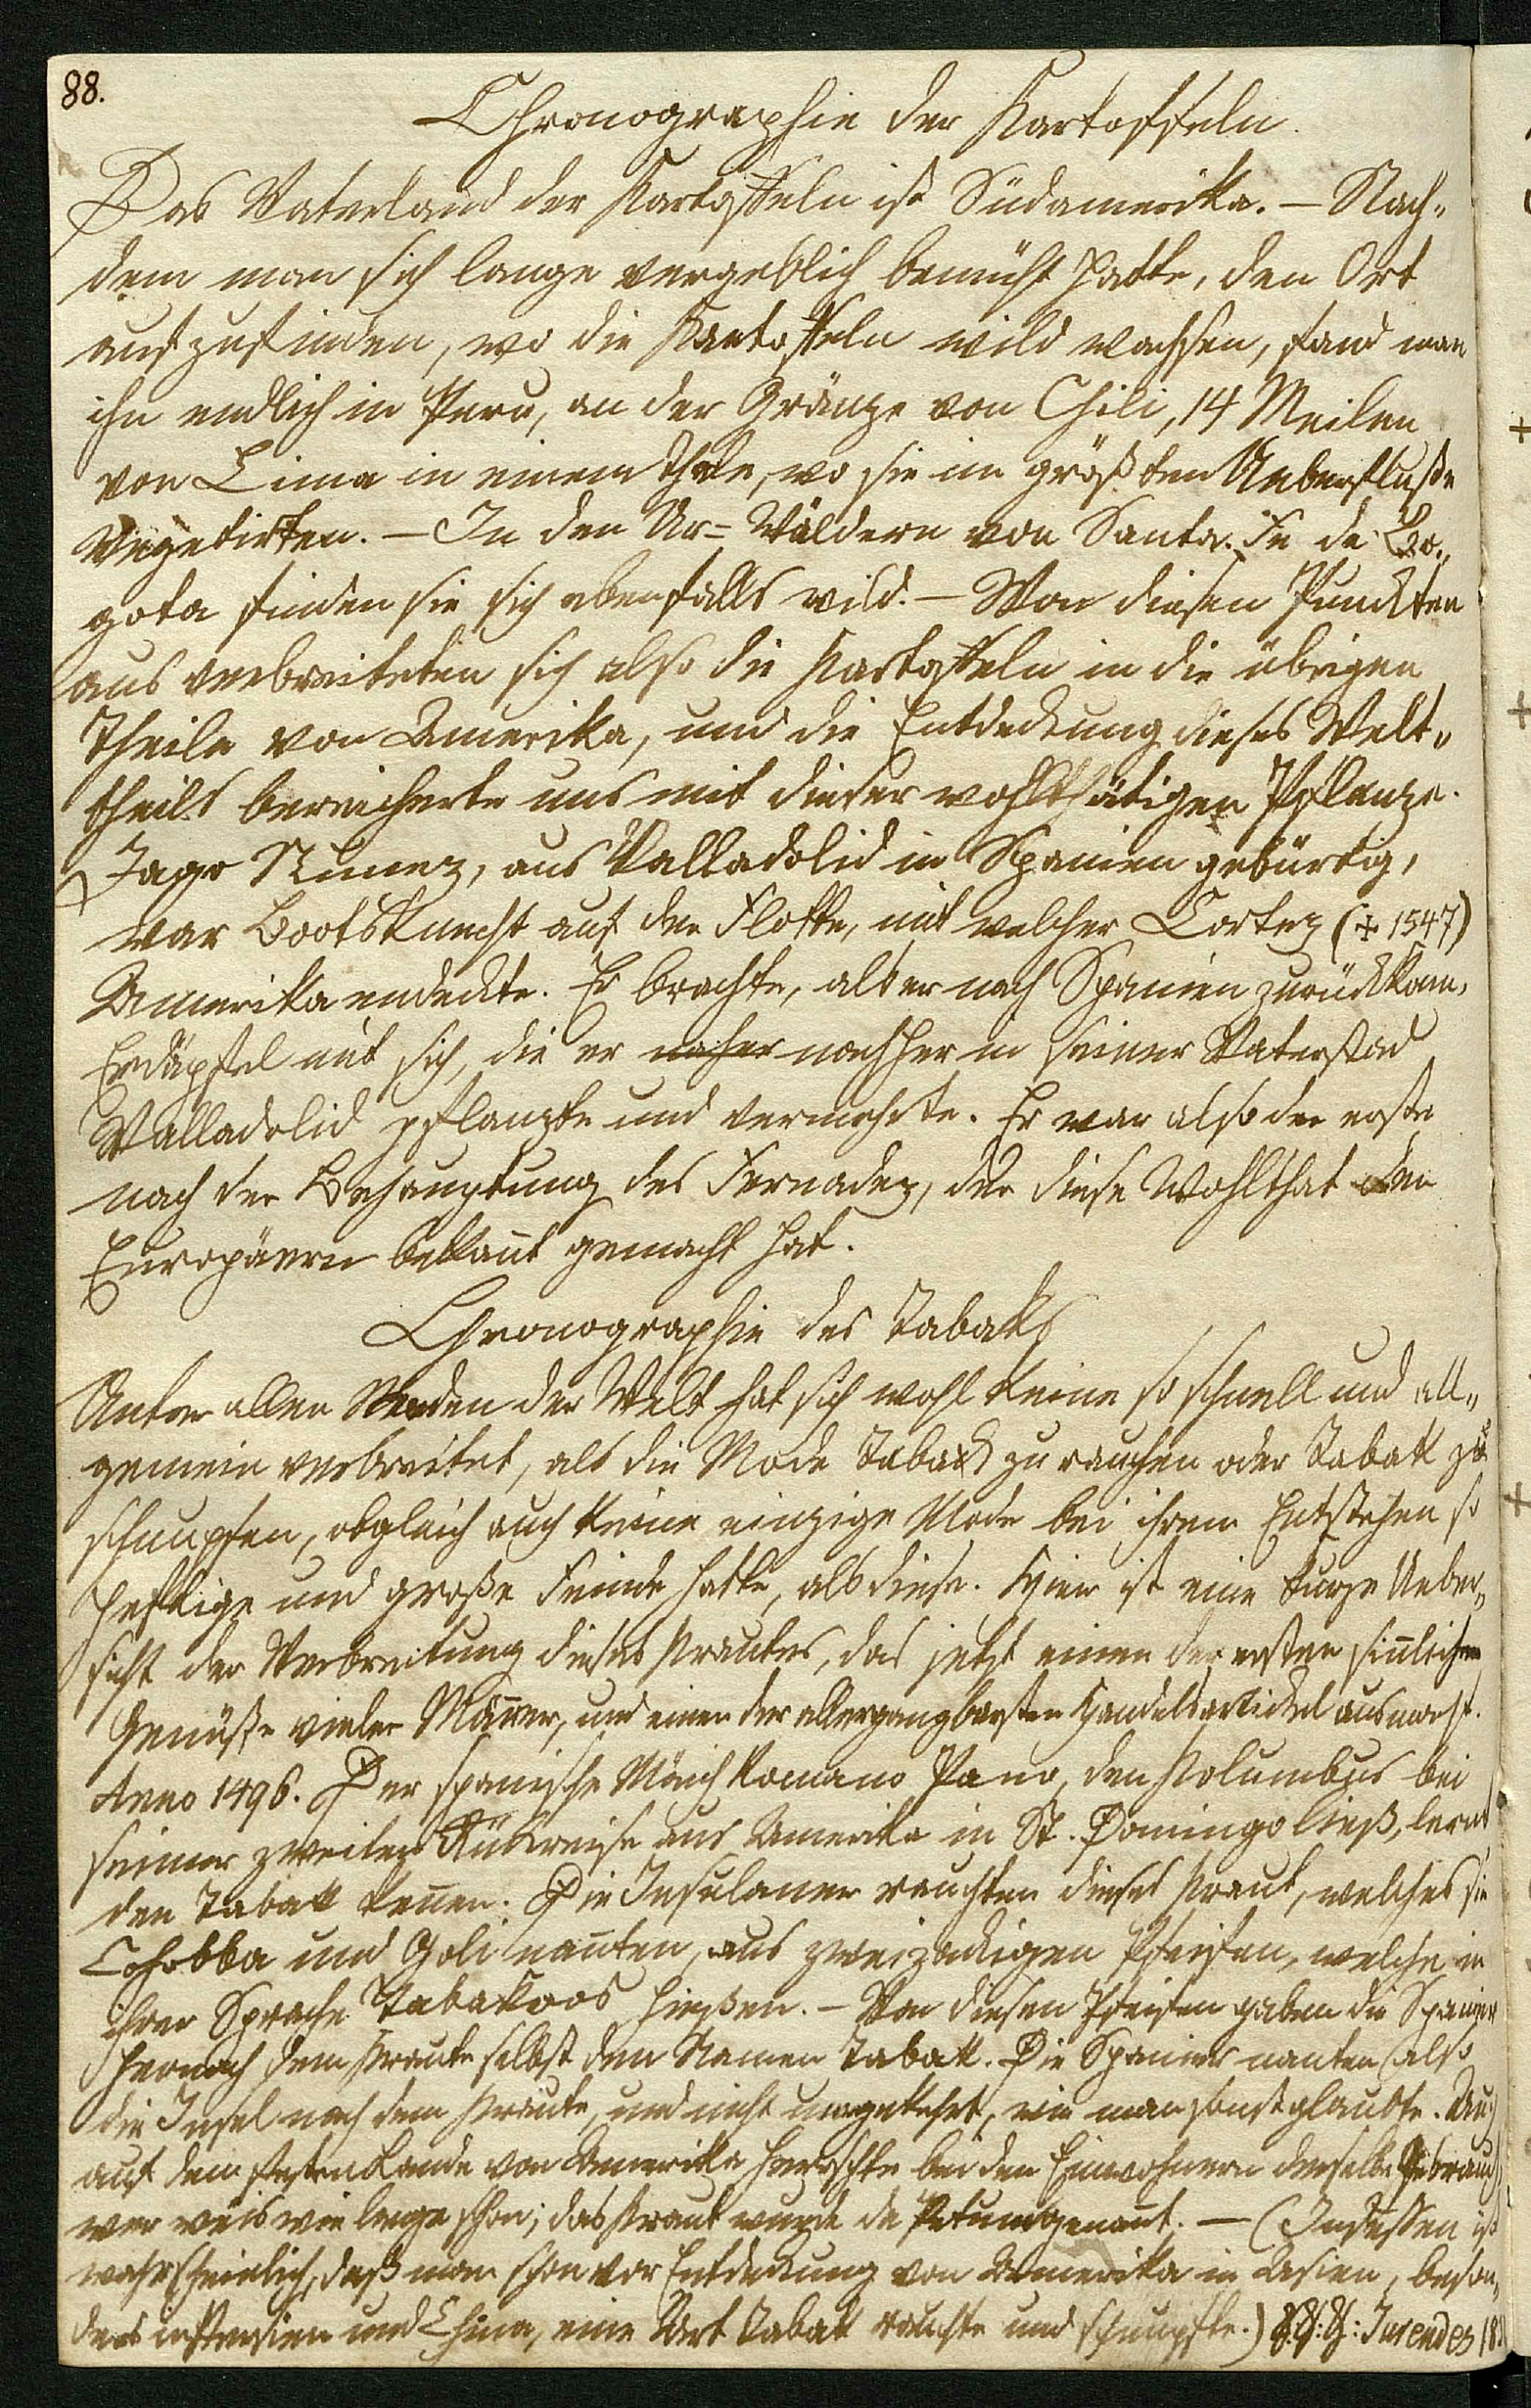 88.
Chronographie der Kartoffeln.
Das Vaterland der Kartoffeln ist Südamerika. – Nach„
dem man sich lange vergeblich bemüht hatte, den Ort
aufzufinden, wo die Kartoffeln wild wachsen, fand man
ihn endlich in Peru, an der Gränze von Chili, 14 Meilen
von Lima in einem Thale, wo sie im größten Ueberfluße
Vegetirten. – In den Ur= Wäldern von Santa Fe de Bo„
gota finden sie sich ebenfalls wild. – Von diesen Punckten
aus verbreiteten sich also die Kartoffeln in die übrigen
Theile von Amerika, und die Entdeckung dieses Welt„
theils bereicherte uns mit dieser wohlthätigen Pflanze.
Jago Nunez, aus Valladolid in Spanien gebürtig,
war Bootsknecht auf der Flotte, mit welcher Cortez (✝ 1547)
Amerika endeckte. Er brachte, als er nach Spanien zurückkam,
Erdäpfel mit sich, die er naher nachher in seiner Vaterstad
Valladolid pflanzte und vermehrte. Er war also der erste
nach der Behauptung des Fernadez, der diese Wohlthat den
Europäern bekañt gemacht hat.
Chronographie des Tabaks
Unter allen Moden der Welt hat sich wohl keine so schnell und all„
gemein verbreitet, als die Mode Taback zu rauchen oder Tabak zu
schnupfen, obgleich auch keine einzige Mode bei ihrem Entstehen so
heftige und große Feinde hatte, als diese. Hier ist eine kurze Ueber„
sicht der Verbreitung dieses Krautes, das jetzt einen der ersten siñlichen
Genüße vieler Mäñer, und einen der allergangbarsten Handelsartickel ausmacht.
Anno 1496. Der spanische Mönch Romano Pano, den Kolumbus bei
seiner zweiten Rückreise aus Amerika in St. Domingo ließ, lernt
den Tabak keñen. Die Insulaner rauchten dieses Kraut, welches sie
Cohobba und Goli nañten, aus zweizackigen Pfeifen, welche in
ihrer Sprache Tabakoos hießen. – Von diesen Pfeifen gaben die Spanier
hernach dem Kraute selbst den Namen Tabak. Die Spanier nanten also
die Insel nach dem Kraute, und nicht umgekehrt, wie man sonst glaubte. Auch
auf dem festen Lande von Amerika herrschte bei den Einwohnern derselbe Gebrauch
wer weis wie lange schon; das Kraut wurde da Petum genañt. — (Indessen ist
wahrscheinlich, daß man schon vor Entdeckung von Amerika in Asien, beson„
ders in Persien und China, eine Art Tabak rauchte und schnupfte.) Jurendes